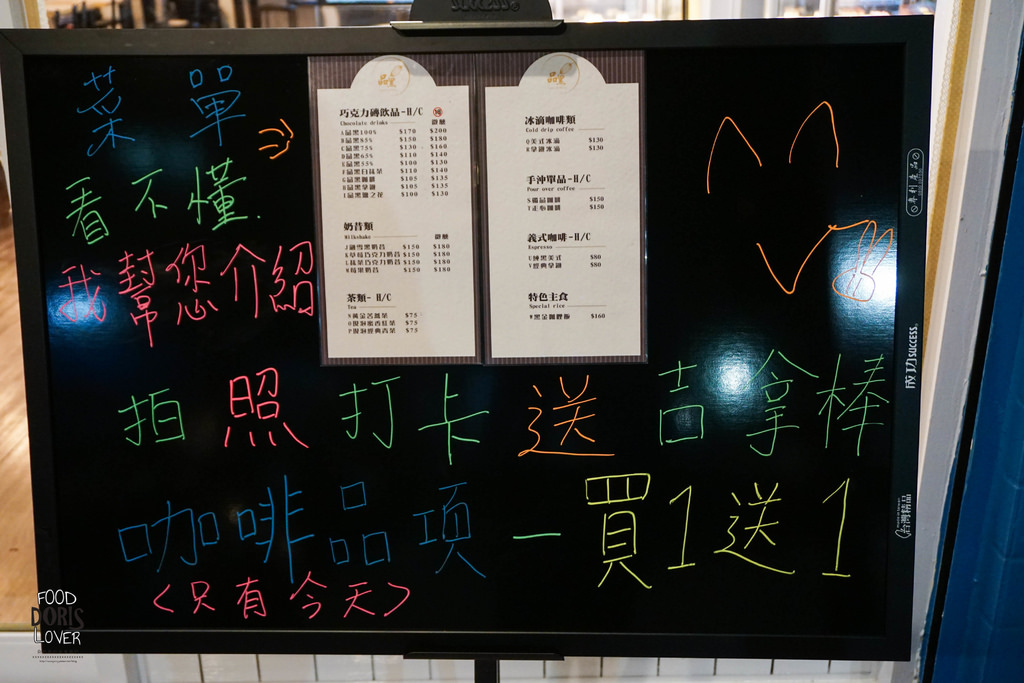 success®
菜單
看不懂.
我幫您介紹
品黑
巧克力磚飲品-H/C
Chocolate drinks 微糖
A品黑100% $170 $200
B品黑85% $150 $180
C品黑75% $130 $160
D品黑65% $110 $140
E品黑55% $100 $130
F品黑白抹茶 $110 $140
G品黑咖啡 $105 $135
H品黑拿鐵 $105 $135
$100 $130
奶昔類
Milkshake 微糖
J融雪黑奶昔 $150 $180
K草莓巧克力奶昔 $150 $180
L抹茶巧克力奶昔 $150 $180
M莓果奶昔 $150 $180
茶類- H/C
Tea
$75
$75
$75
冰滴咖啡類
Cold drip coffee
Q美式冰滴 $130
R拿鐵冰滴 $130
手沖單品-H/C
Pour over coffee
$150
$150
義式咖啡-H/C
Espresso
$80
V經典拿鐵 $80
特色主食
Special rice
$160
拍照打卡送吉拿棒
咖啡品項 — 買1送1
<只有今天>
專利產品
成功success®
台灣精品
FOOD
DORIS
LOVER